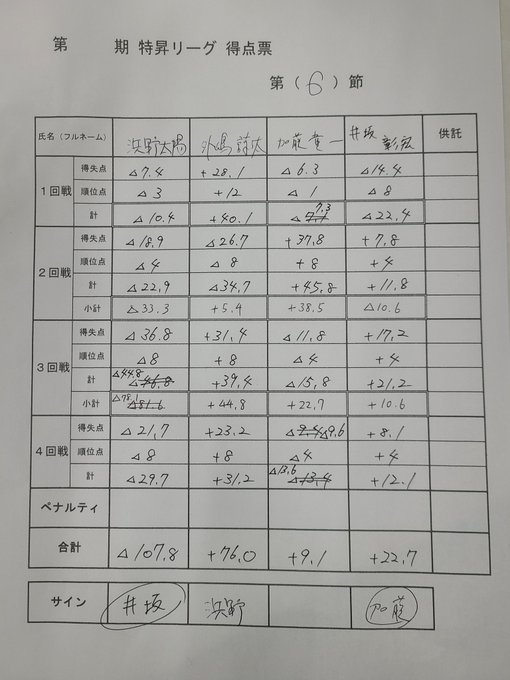 第 期 特昇リーグ 得点票
第(6)節
氏名(フルネーム) 浜野太陽 外嶋 加藤 一 井坂 彰宏 供託
1回戦 得失点 △7.4 +28.1 △6.3 △14.4
順位点 △3 +12 △1 △8
計 △10.4 +40.1 △7.3 △22.4
2回戦 得失点 △18.9 △26.7 +37.8 +7.8
順位点 △4 △8 +8 +4
計 △22.9 △34.7 +45.8 +11.8
小計 △33.3 +5.4 +38.5 △10.6
3回戦 得失点 △36.8 +31.4 △11.8 +17.2
順位点 △8 +8 △4 +4
計 △44.8 △46.8 +39.4 △15.8 +21.2
小計 △78.1 △81.6 +44.8 +22.7 +10.6
4回戦 得失点 △21.7 +23.2 △9.4 △9.6 +8.1
順位点 △8 +8 △4 +4
計 △29.7 +31.2 △13.6 △13.4 +12.1
ペナルティ
合計 △107.8 +76.0 +9.1 +22.7
サイン 井坂 浜野 加藤